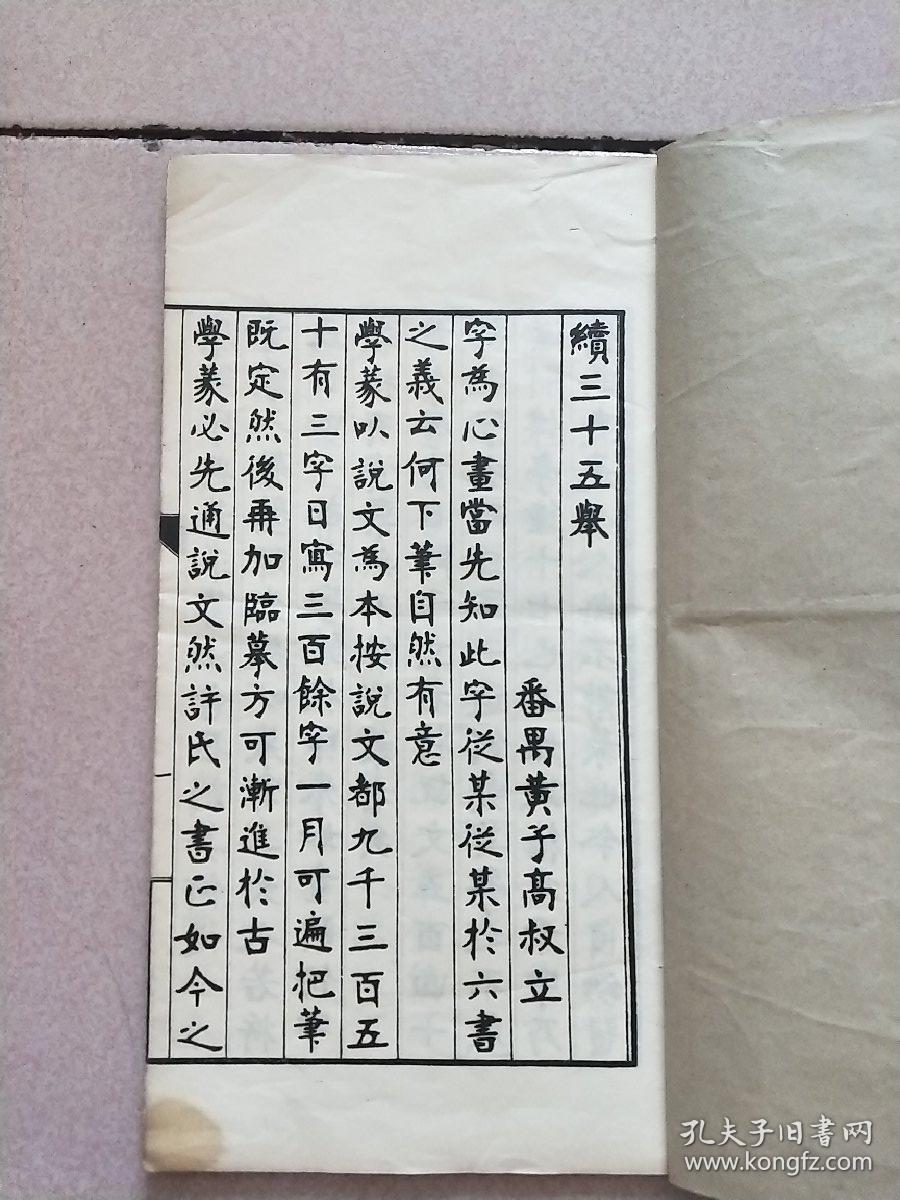 續三十五舉
番禺黃子高叔立
字為心畫當先知此字從某從某於六書
之義云何下筆自然有意
學篆以說文為本按說文都九千三百五
十有三字日寫三百餘字一月可遍把筆
既定然後再加臨摹方可漸進於古
學篆必先通說文然許氏之書正如今之
一
孔夫子旧书网
www.kongfz.com